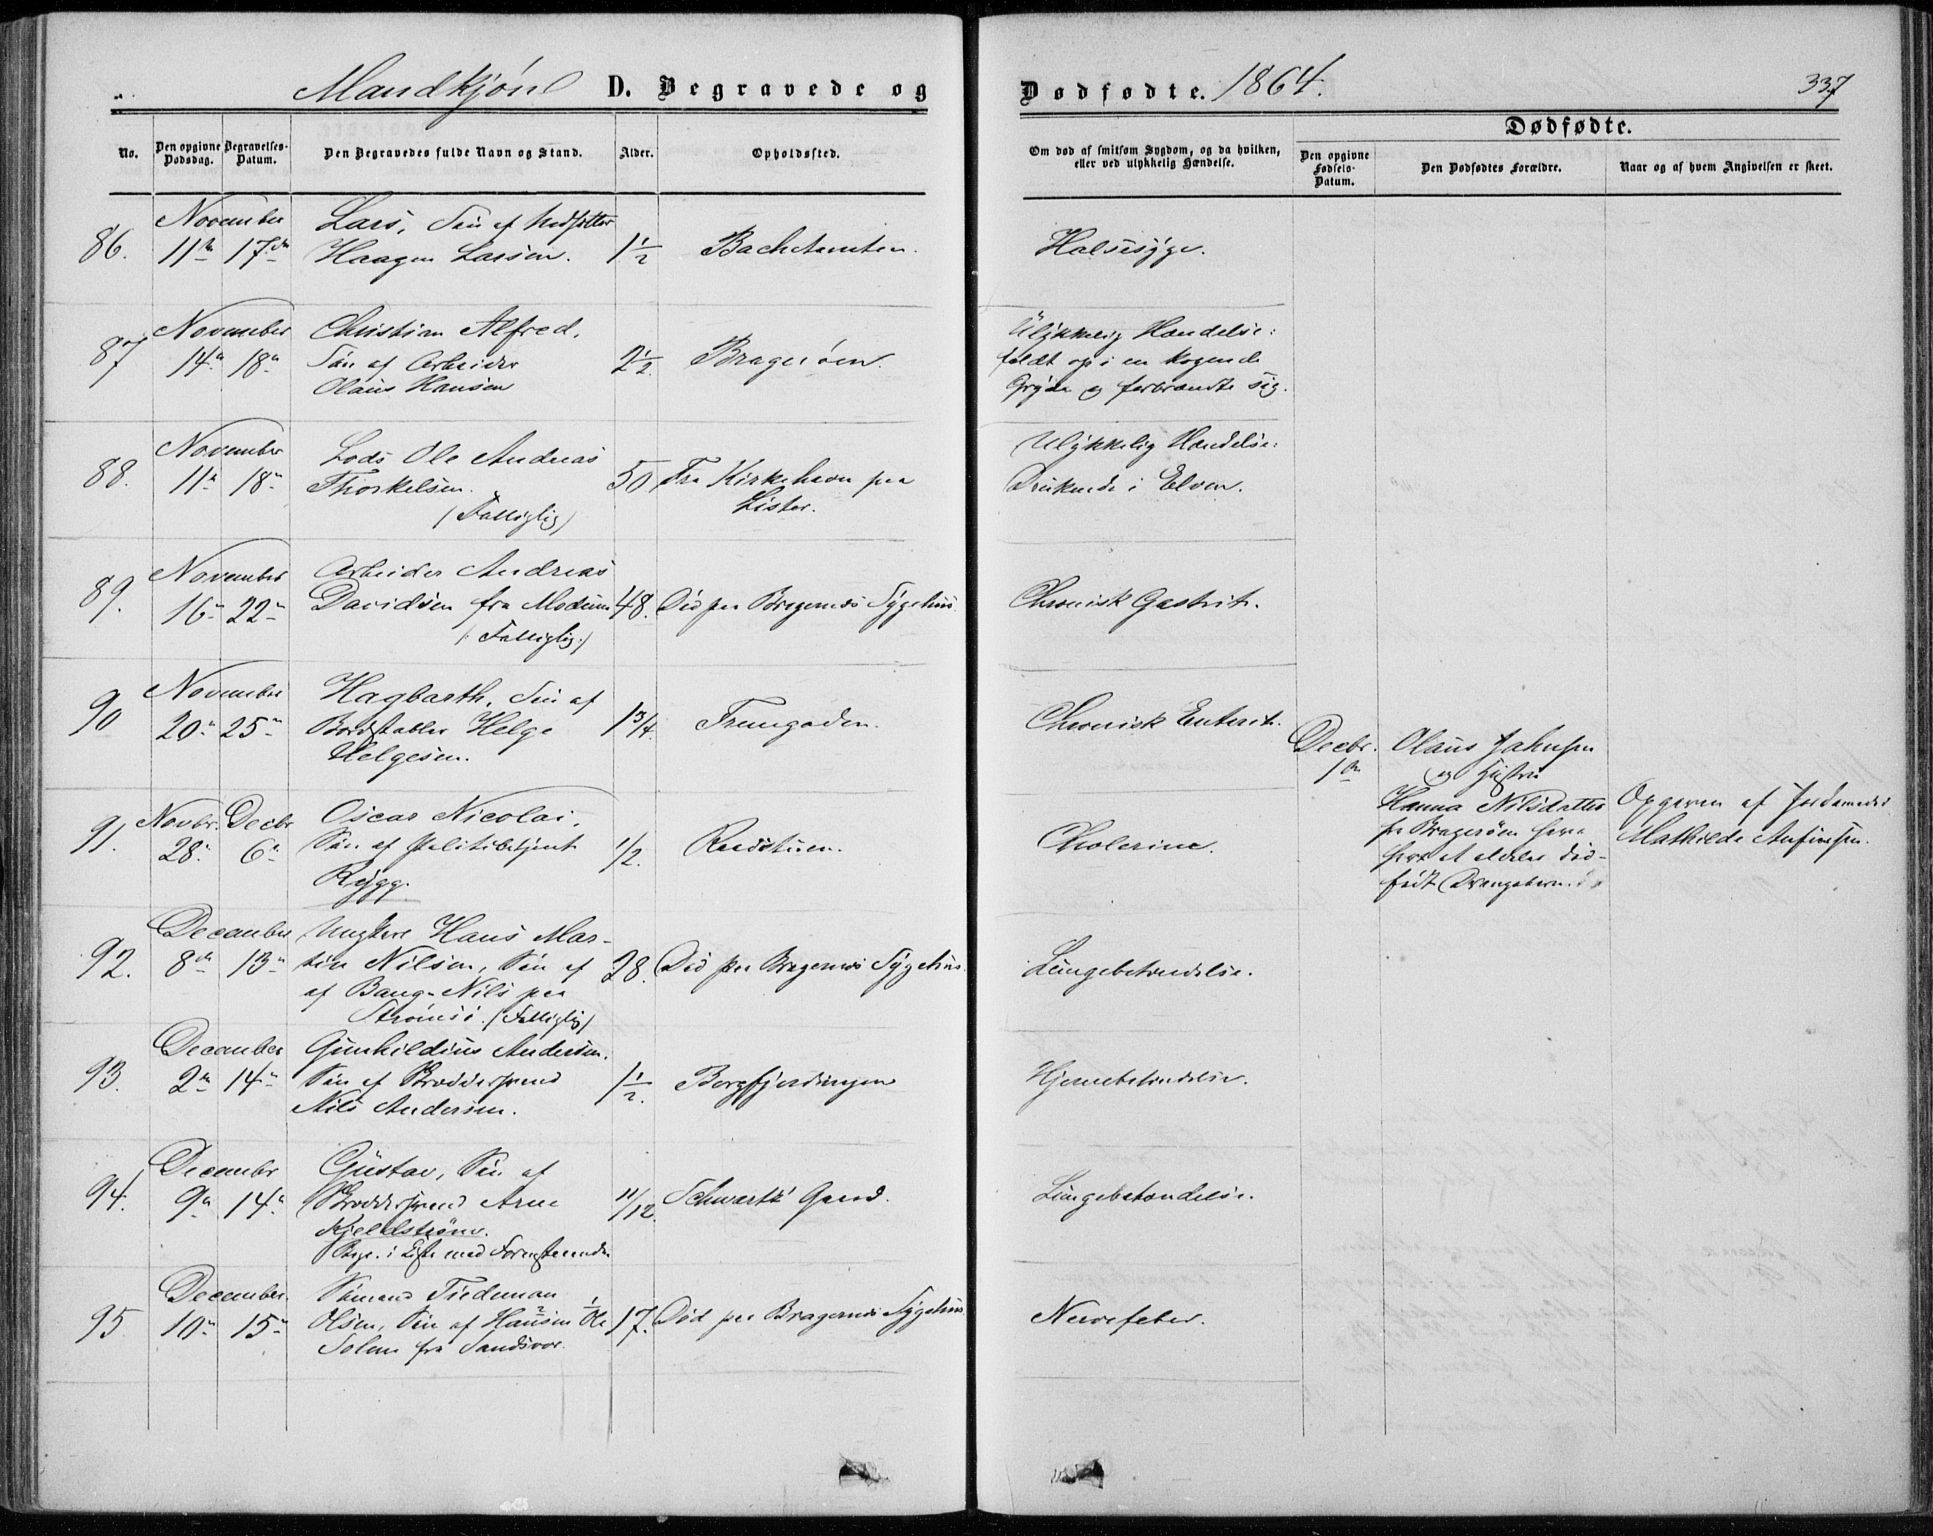 Mandkjøn D. Begravede og
No.
Den opgivne Dødsdag.
Begravelses-Datum.
Den Begravedes fulde Navn og Stand.
Alder.
Opholdssted.
86.
November
11te 17de
Lars, Søn af
Haagen Larsen.
1 1/2
87
November
14de 18de
Christian Alfred,
Søn af Arbeider
Olaus Hansen
2 1/2.
Bragerøen.
88.
November
11te 18de
Lods Ole Andreas
Thorkelsen.
(Fattiglig)
50
Fra Kirkehavn paa
Lister.
89.
November
16de 22de
Arbeider Andreas
Davidsen fra Modum
(Fattiglig.)
48.
Død paa Bragernes Sygehus
90
November
20de 25de
Hagbarth, Søn af
Bordstabler Helge
Helgesen.
1 3/4.
Tverrgaden.
91.
Novbr. Decbr
28de 6te
Oscar Nicolai,
Søn af Politibetjent
Rygg.
1/2
Raadstuen.
92.
December
8de 13de
Ungkarl Hans Mar-
tin Nilsen, Søn af
af Bang-Nils paa
Strømsø. (Fattiglig)
28.
Død paa Bragernes Sygehus.
93.
December
2den 14de
Gunhildius Andersen.
Søn af
Nils Andersen.
1 1/2.
Bergfjerdingen
94.
Decembr
9de 14de
Gustav, Søn af
Arne
Kjellstrøm.
Begr. i Kiste med Foranstaaende
11/12.
Schwartz' Gaard.
95
December.
10de 15de
Sømand Tidemann
Olsen, Søn af Hansen Ole
Solem fra Sandsvær.
17.
Død paa Bragernes Sygehus
Dødfødte. 1864.
337
Om død af smitsom Sygdom, og da hvilken,
eller ved ulykkelig Hændelse.
Dødfødte.
Den opgivne Fødsels-Datum.
Den Dødfødtes Forældre.
Naar og af hvem Angivelsen er skeet.
Halssyge.
Ulykkelig Hændelse:
faldt op i en kogende
Gryde og forbrændte sig.
Ulykkelig Hændelse:
Druknede i Elven.
Chronisk Gastrit.
Chronisk Enterit.
Cholerine.
Lungebetændelse.
Hjernebetændelse.
Lungebetændelse.
Nervefeber.
Decbr.
1ste
Olaus Jahnsen
og Hustru
Hanna Nilsdatter
fra Bragerøen have
havt et aldeles død-
født Drengebarn.
Opgiven af Jordemoder
Mathilde Anfinsen.